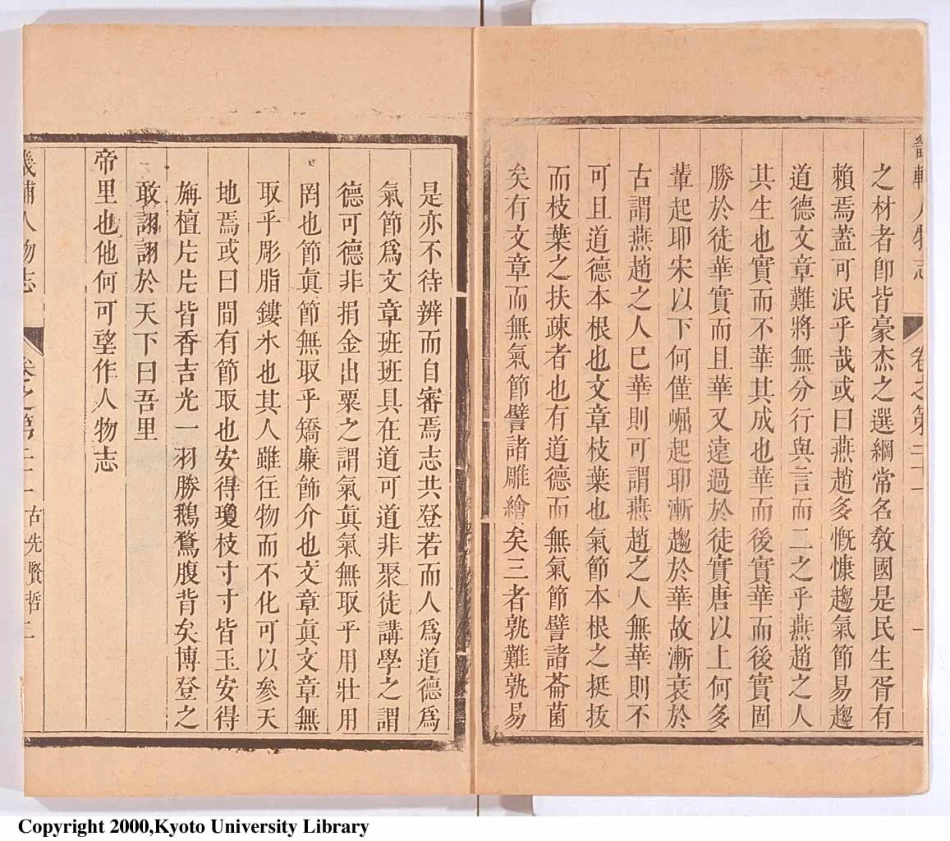 畿輔人物志 卷之第二十一 一
之材者卽皆豪杰之選綱常名敎國是民生胥有
賴焉蓋可泯乎哉或曰燕趙多慨慷趨氣節易趨
道德文章難將無分行與言而二之乎燕趙之人
其生也實而不華其成也華而後實華而後實固
勝於徒華實而且華又遠過於徒實唐以上何多
輩起耶宋以下何僅崛起耶漸趨於華故漸衰於
古謂燕趙之人巳華則可謂燕趙之人無華則不
可且道德本根也文章枝葉也氣節本根之挺拔
而枝葉之扶疎者也有道德而無氣節譬諸菌
矣有文章而無氣節譬諸雕繪矣三者孰難孰易
是亦不待辨而自審焉志共登若而人爲道德爲
氣節爲文章班班具在道可道非聚徒講學之謂
德可德非捐金出粟之謂氣眞氣無取乎用壯用
罔也節眞節無取乎矯廉飾介也文章眞文章無
取乎彫脂鏤氷也其人雖往物而不化可以參天
地焉或曰間有節取也安得瓊枝寸寸皆玉安得
旃檀片片皆香吉光一羽勝鵝鶩腹背矣博登之
敢詡詡於天下曰吾里
帝里也他何可望作人物志
畿輔人物志 卷之第二十一 古先賢哲 二
Copyright 2000,Kyoto University Library